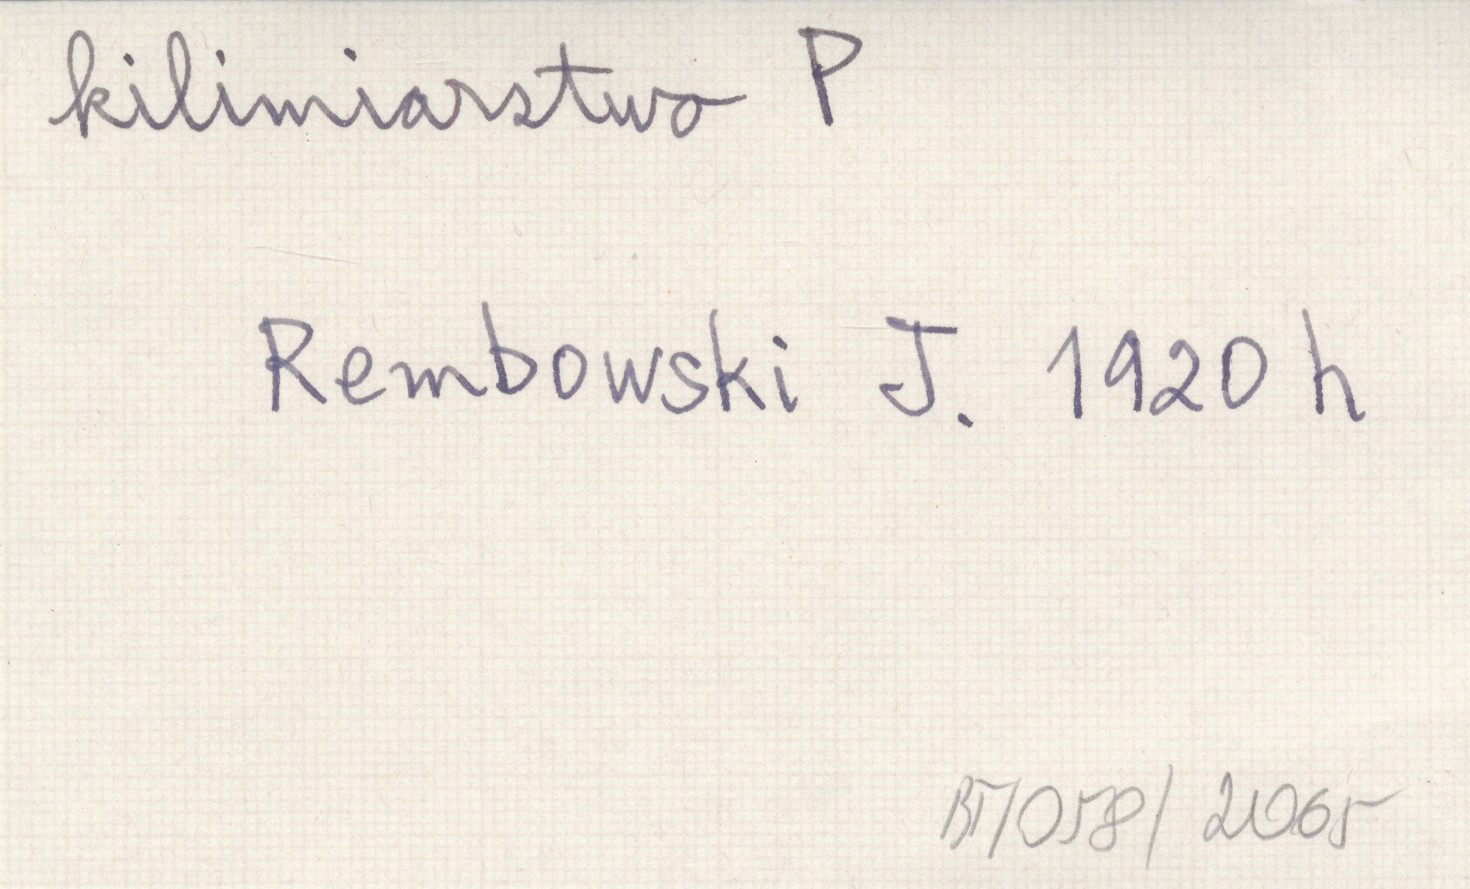 kilimiarstwo P
Rembowski J. 1920 h
BT/058/2065